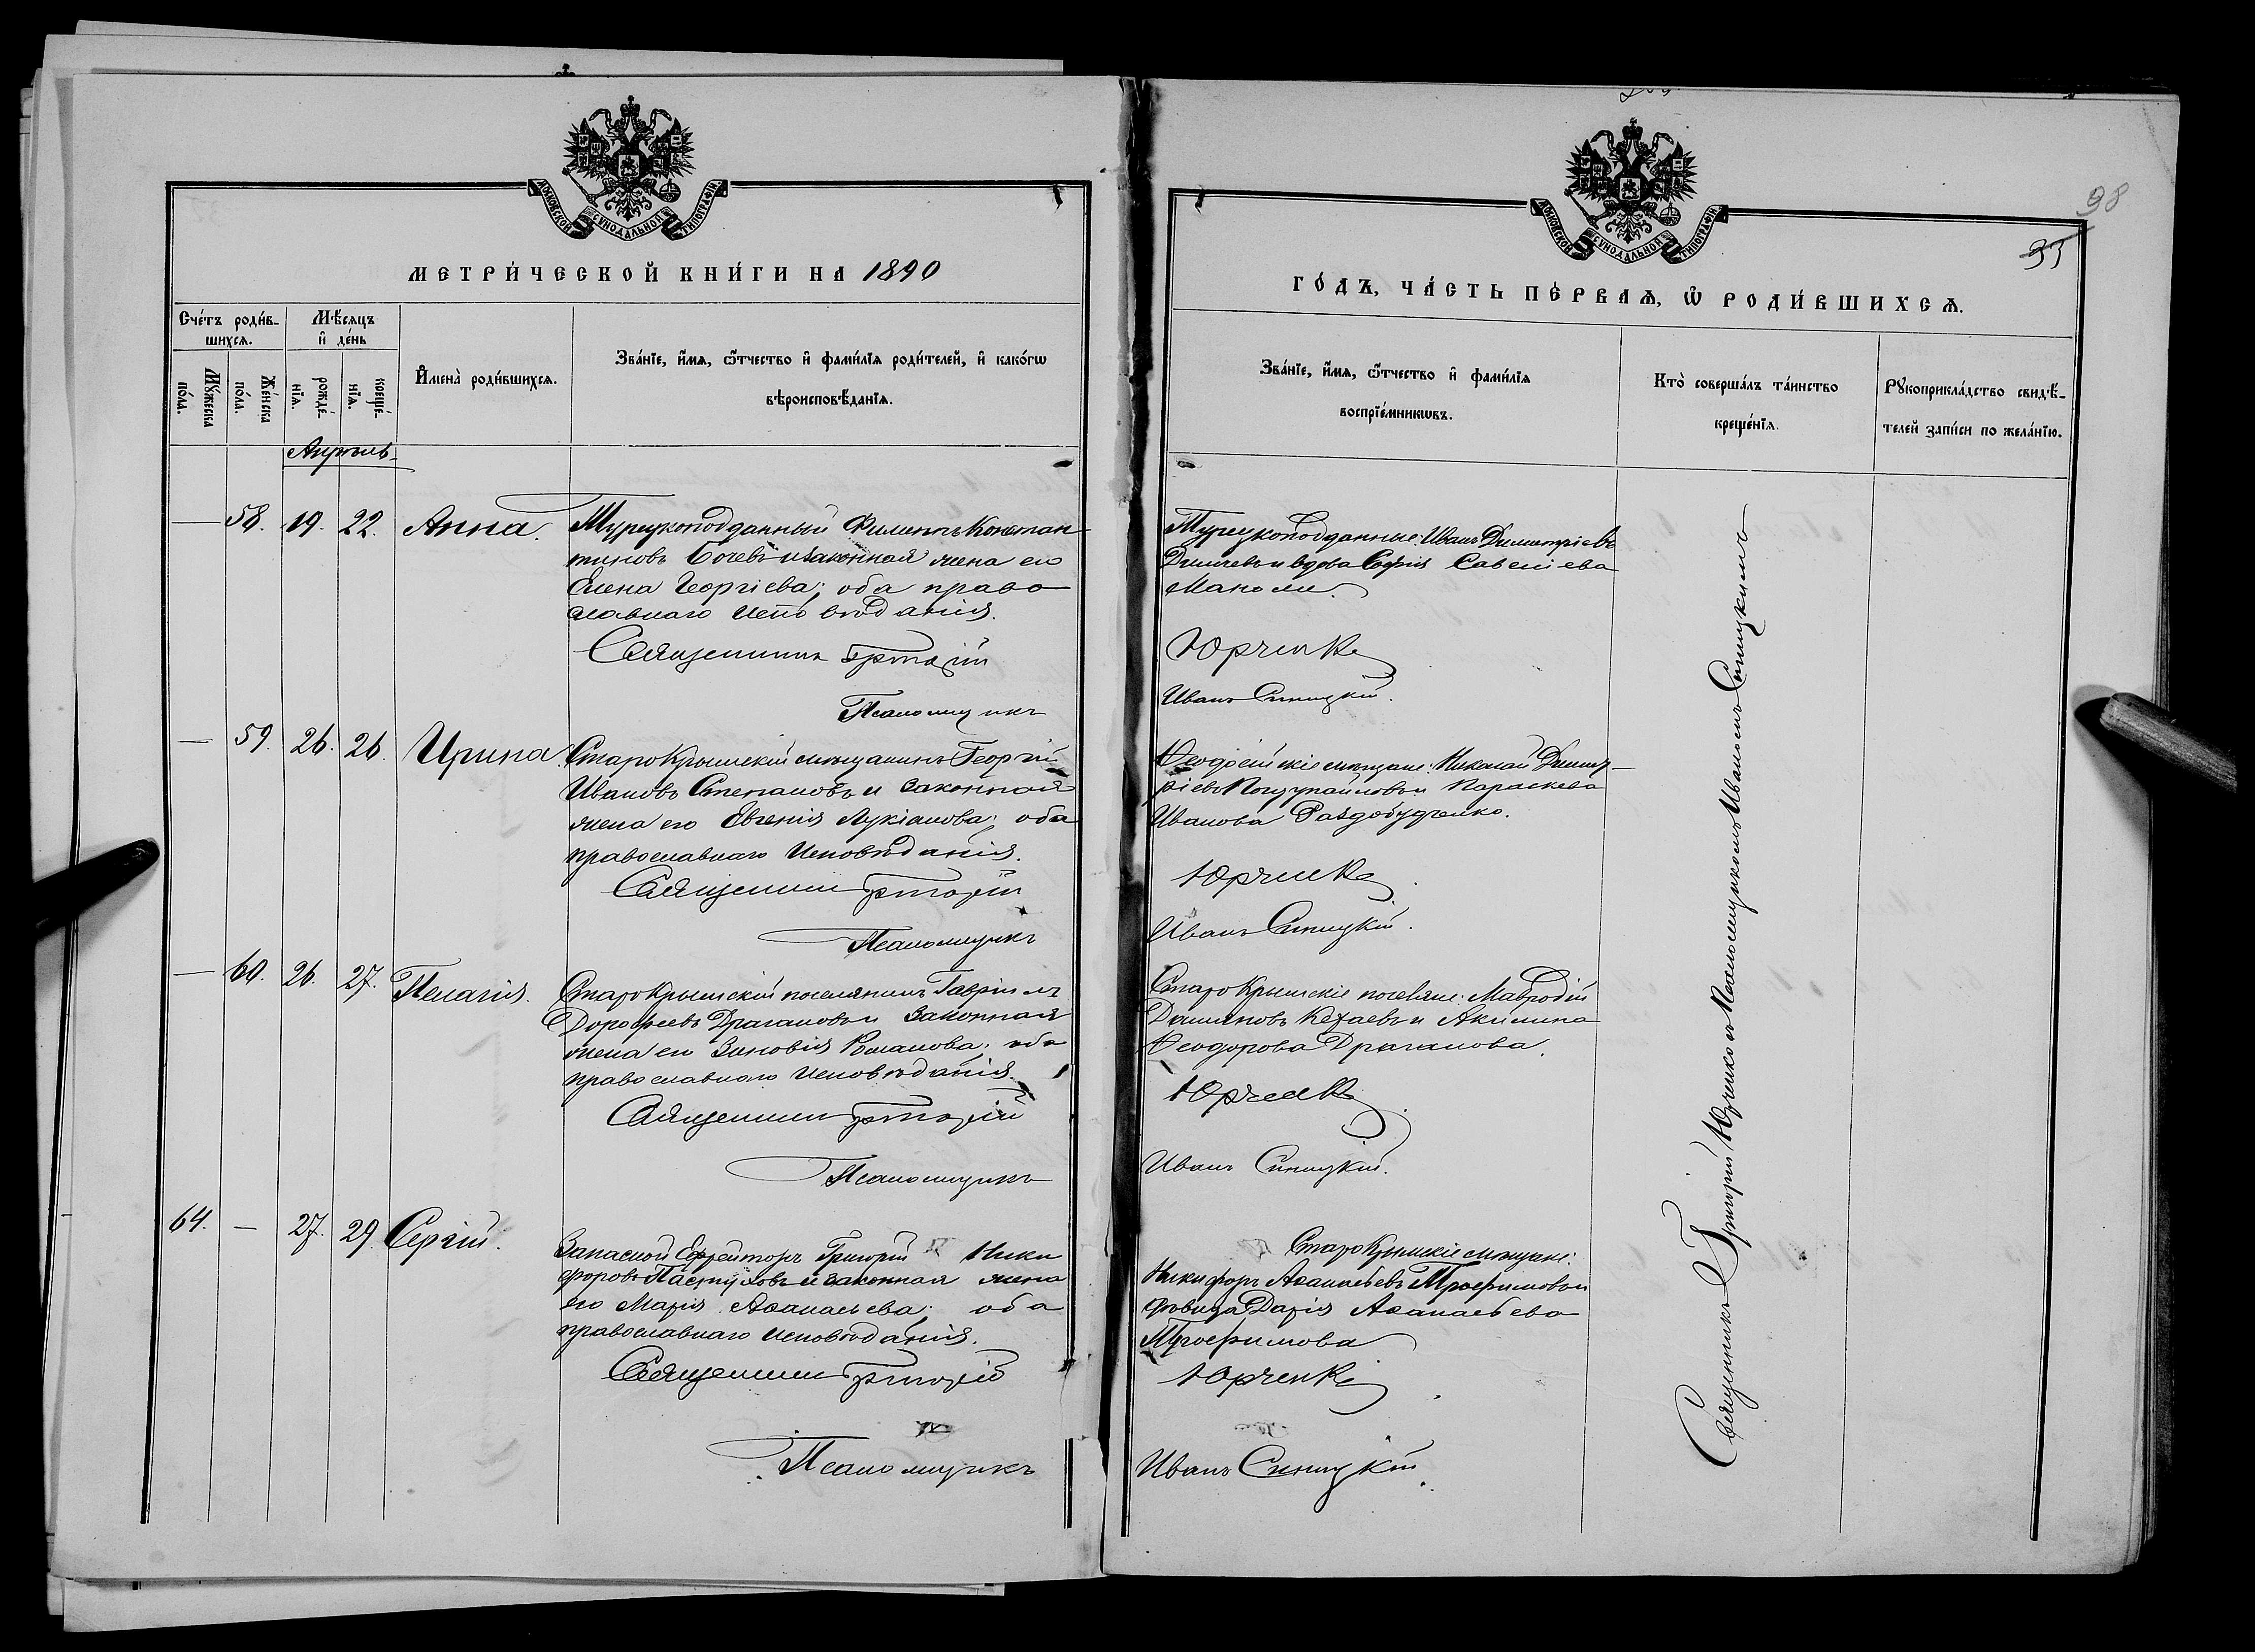 МОСКОВСКОЙ СѴНОДАЛЬНОЙ ТИПОГРАФІИ
МЕТРИ́ЧЕСКОЙ КНИ́ГИ НА 1890
Сче́тъ роди́в-
шихся.
Мѣ́сяцъ
и҆ де́нь
Мꙋ́жеска
по́ла.
Же́нска
по́ла.
рожде́-
нїя.
креще́-
нїя.
И҆мена̀ роди́вшихся.
Зва́нїе, и҆́мя, ѻ҆́тчество и҆ фами́лїя роди́телей, и҆ како́гѡ
вѣроисповѣ́данїя.
Апрѣль
— 58. 19. 22. Анна.
Турецкоподданный Филиппъ Констан
тиновъ Бочевъ и законная жена его
Елена Георгіева; оба право
славнаго исповѣданія.
Священникъ Григорій
Псаломщикъ
— 59. 26. 26. Ирина
Старокрымскій мѣщанинъ Георгій
Ивановъ Степановъ и законная
жена его Евгенія Лукіанова; оба
православнаго исповѣданія.
Священникъ Григорій
Псаломщикъ
— 60. 26. 27. Пелагія.
Старокрымскій поселянинъ Гавріилъ
Дорофеевъ Драгановъ и законная
жена его Зиновія Романова; оба
православнаго исповѣданія.
Священникъ Григорій
Псаломщикъ
64. — 27. 29. Сергій.
Запасной Ефрейторъ Григорій Ники
форовъ Пастуховъ и законная жена
его Марія Аѳанасьева; оба
православнаго исповѣданія.
Священникъ Григорій
Псаломщикъ
98
35
МОСКОВСКОЙ СѴНОДАЛЬНОЙ ТИПОГРАФІИ
ГО́ДЪ, ЧА́СТЬ ПЕ́РВАѦ, Ѡ҆ РОДИ́ВШИХСѦ.
Зва́нїе, и҆́мя, ѻ҆́тчество и҆ фами́лїя
воспрїе́мникѡвъ.
Кто̀ соверша́лъ та́инство
креще́нїя.
Рꙋкоприкла́дство свидѣ́-
телей за́писи по жела́нїю.
Турецкоподданные: Иванъ Димитріевъ
Димчевъ и вдова Софія Савеліева
Маноли.
Юрченко
Иванъ Синицкій.
Ѳеодосійскіе мѣщане: Николай Димит-
ріевъ и Параскева
Иванова Раздобудченко.
Юрченко
Иванъ Синицкій.
Старокрымскіе поселяне: Мавродій
Даміановъ Кехаевъ и Акилина
Ѳеодорова Драганова.
Юрченко
Иванъ Синицкій.
Старокрымскіе мѣщане:
Никифоръ Аѳанасьевъ Трофимовъ и
дѣвица Дарія Аѳанасьева
Трофимова
Юрченко
Иванъ Синицкій.
Священникъ Григорій Юрченко съ Псаломщикомъ Иваномъ Синицкимъ